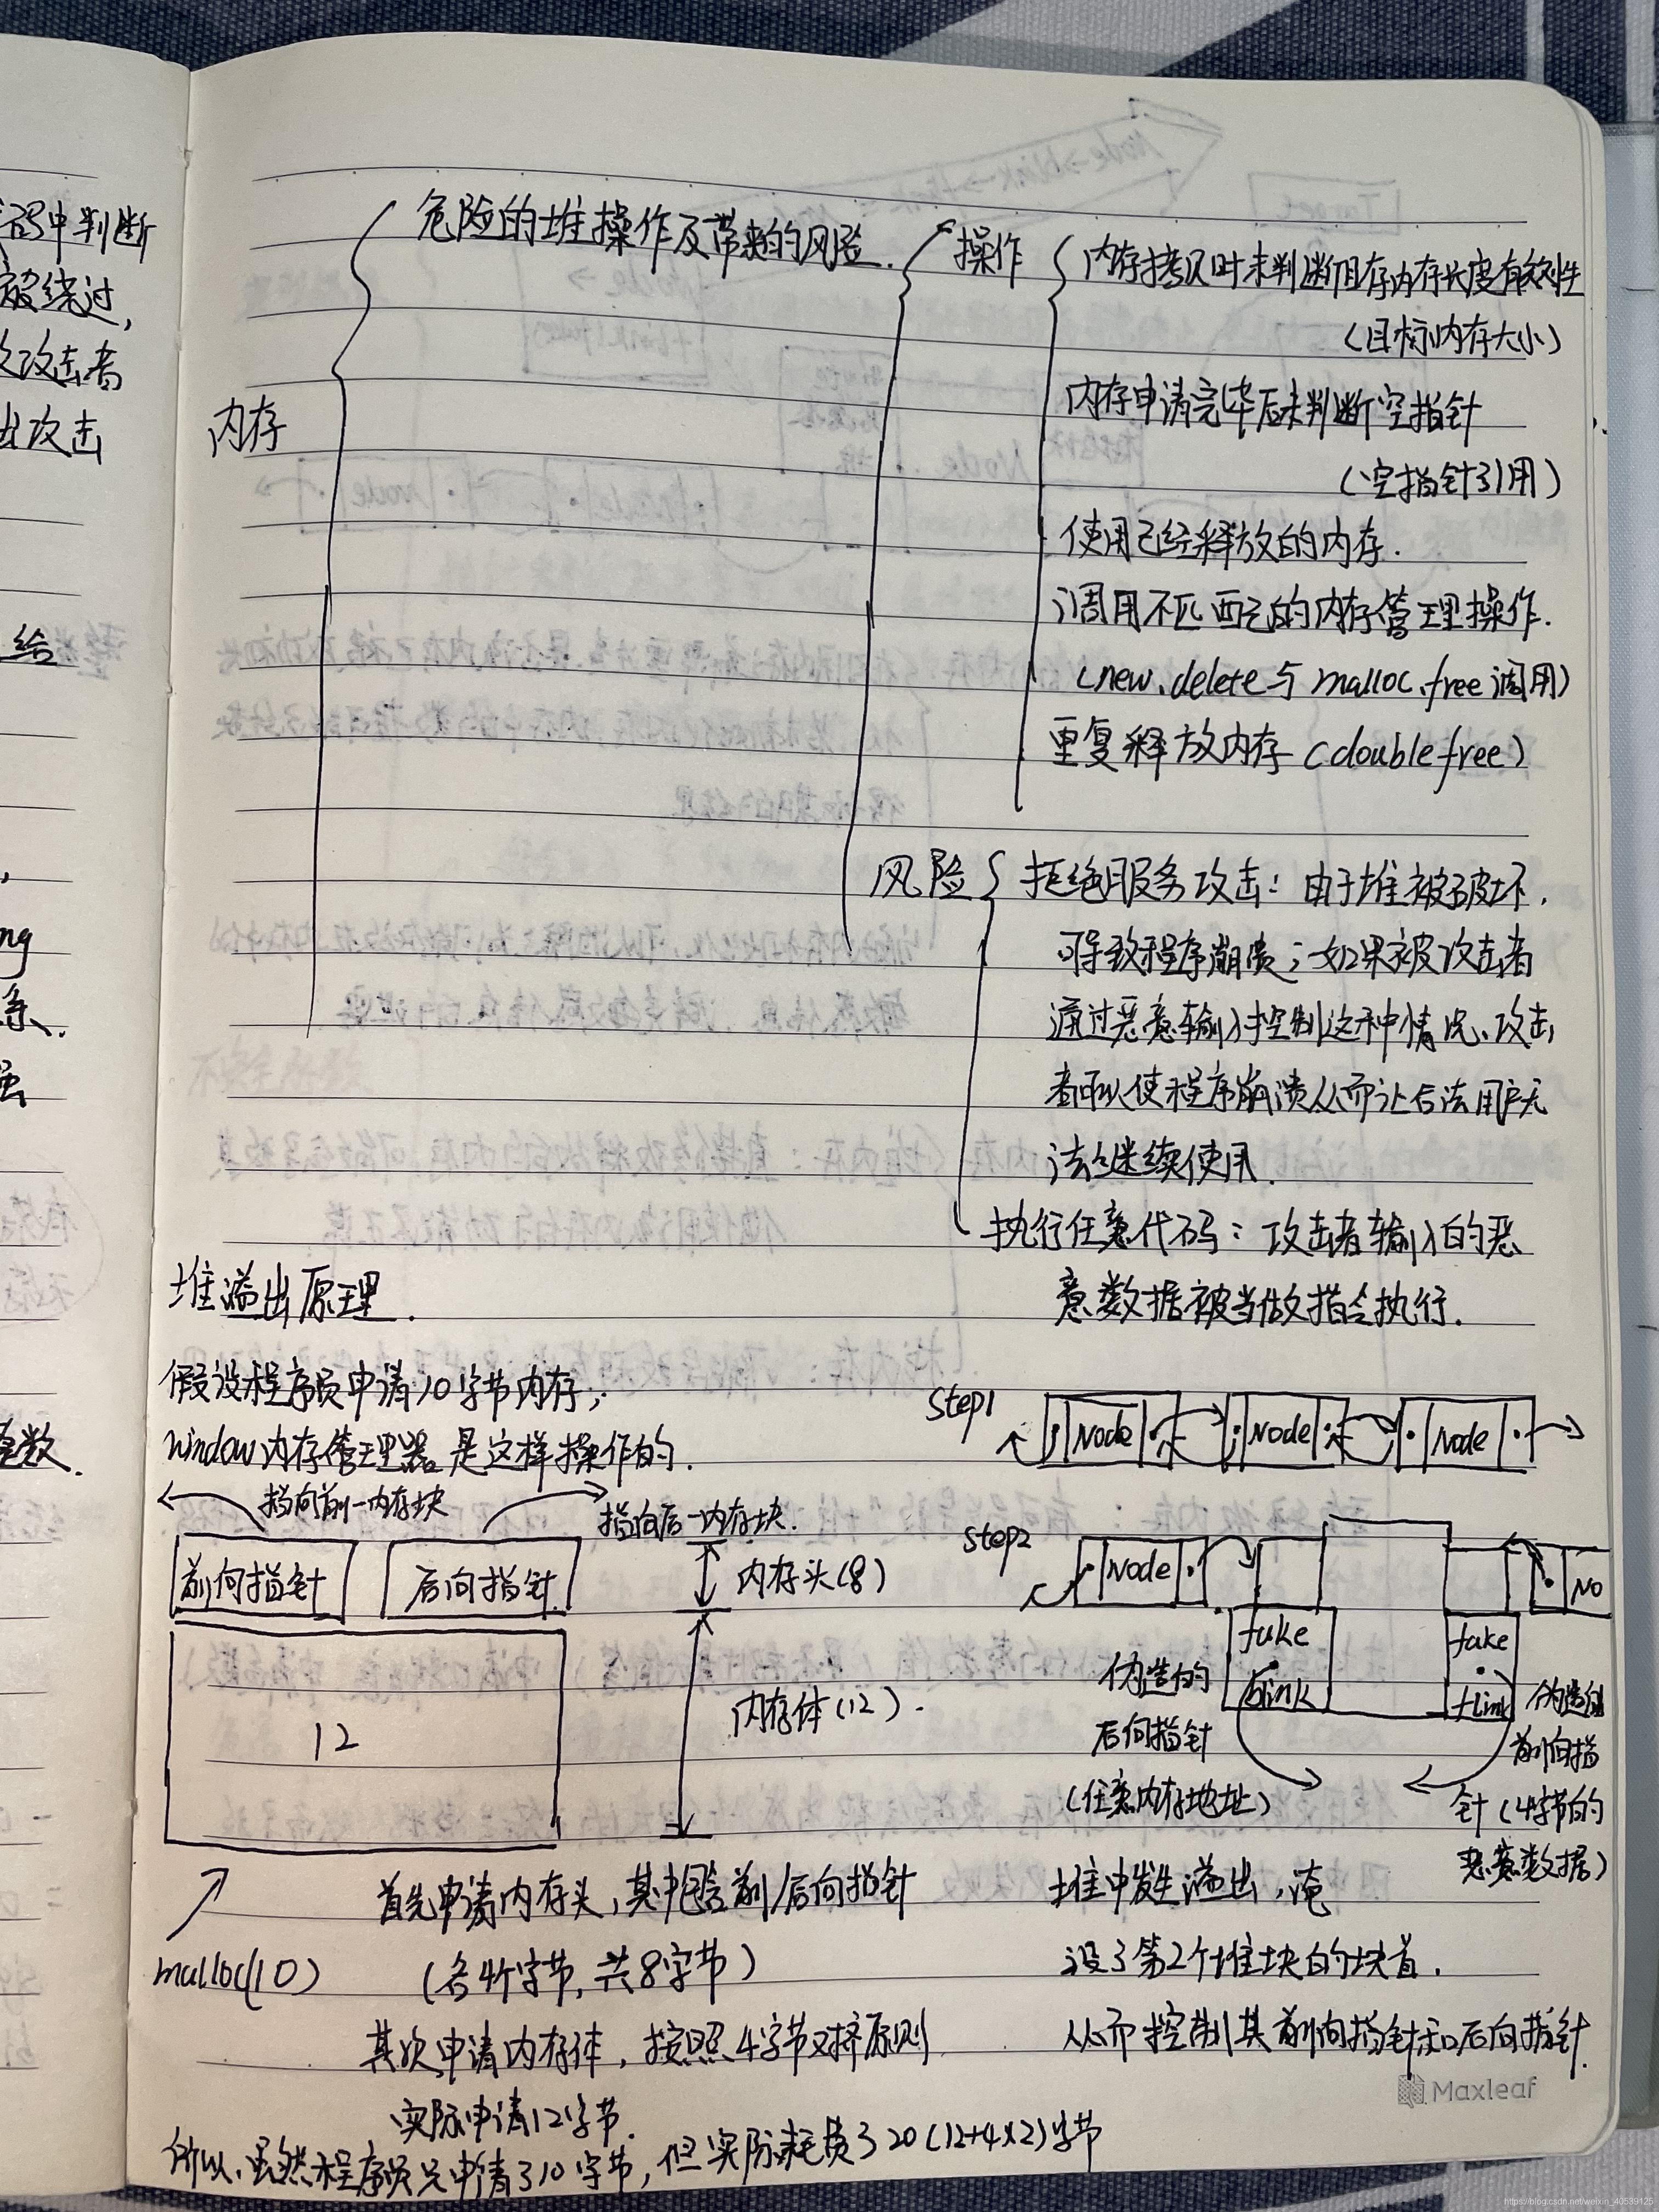 码中判断
被绕过,
攻击者
出攻击
给
ng
系.
数.
内存
危险的堆操作及带来的风险.
操作
内存拷贝时未判断目存内存长度有效性
(目标内存大小)
内存申请完毕后未判断空指针
(空指针引用)
使用已经释放的内存.
调用不匹配的内存管理操作.
(new.delete与malloc.free调用)
重复释放内存(double free)
风险
拒绝服务攻击: 由于堆被破坏.
可导致程序崩溃;如果被攻击者
通过恶意输入控制这种情况、攻击
者可以使程序崩溃从而让合法用户无
法继续使用.
执行任意代码: 攻击者输入的恶
意数据被当做指令执行.
堆溢出原理.
假设程序员申请10字节内存;
window内存管理器是这样操作的.
指向前一内存块
指向后一内存块.
前向指针
后向指针
内存头(8)
12
内存体(12).
malloc(10)
首先申请内存头,其中包含前/后向指针
(各4个字节,共8字节)
其次申请内存体,按照4字节对齐原则
实际申请12字节.
所以,虽然程序员只申请了10字节,但实际耗费了20(12+4×2)字节
step1
Node
Node
Node
step2
Node
No
fake
blink
fake
flink
伪造的
后向指针
(任意内存地址)
伪造的
前向指
针(4字节的
恶意数据)
堆中发生溢出,淹
没了第2个堆块的块首.
从而控制其前向指针和后向指针.
Maxleaf
https://blog.csdn.net/weixin_40539125